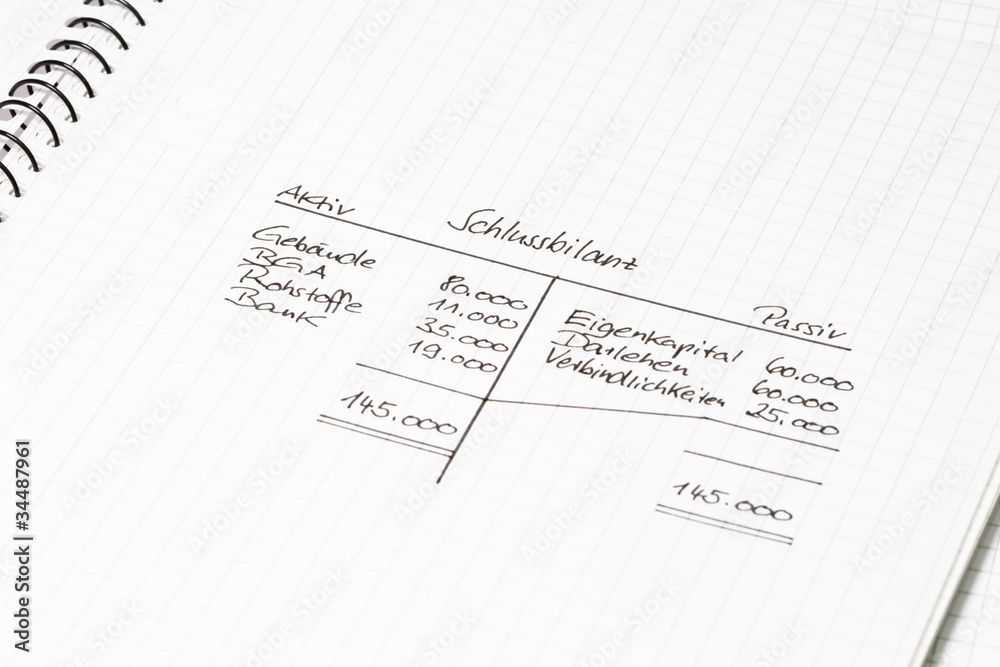 Aktiv Schlussbilanz Passiv
Gebäude 80.000
BGA 11.000
Rohstoffe 35.000
Bank 19.000
145.000
Eigenkapital 60.000
Darlehen 60.000
Verbindlichkeiten 25.000
145.000
Adobe Stock | #34487961